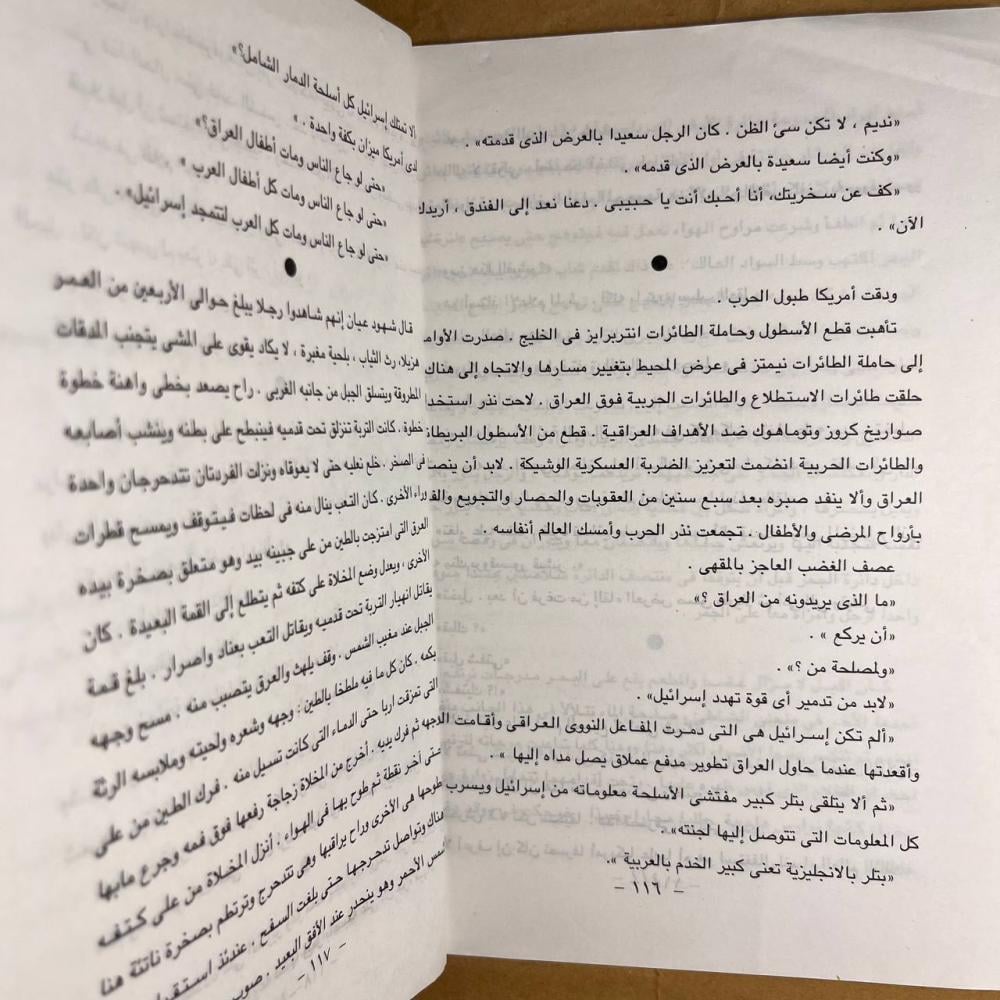 «نديم ، لا تكن سئ الظن . كان الرجل سعيدا بالعرض الذى قدمته» .
«وكنت أيضا سعيدة بالعرض الذى قدمه» .
«كف عن سخريتك، أنا أحبك أنت يا حبيبى . دعنا نعد إلى الفندق ، أريدك
الآن» .
ودقت أمريكا طبول الحرب .
تأهبت قطع الأسطول وحاملة الطائرات انتربرايز فى الخليج . صدرت
إلى حاملة الطائرات نيمتز فى عرض المحيط بتغيير مسارها والاتجاه إلى هناك
حلقت طائرات الاستطلاع والطائرات الحربية فوق العراق . لاحت نذر
صواريخ كروز وتوماهوك ضد الأهداف العراقية . قطع من الأسطول
والطائرات الحربية انضمت لتعزيز الضربة العسكرية الوشيكة . لابد أن
العراق وألا ينفد صبره بعد سبع سنين من العقوبات والحصار والتجويع
بأرواح المرضى والأطفال . تجمعت نذر الحرب وأمسك العالم أنفاسه .
عصف الغضب العاجز بالمقهى .
«ما الذى يريدونه من العراق ؟»
«أن يركع » .
«ولمصلحة من ؟» .
«لابد من تدمير أى قوة تهدد إسرائيل» .
«ألم تكن إسرائيل هى التى دمرت المفاعل النووى العراقى وأقامت
وأقعدتها عندما حاول العراق تطوير مدفع عملاق يصل مداه إليها » .
«ثم ألا يتلقى بتلر كبير مفتشى الأسلحة معلوماته من إسرائيل ويسرب
كل المعلومات التى تتوصل إليها لجنته» .
«بتلر بالانجليزية تعنى كبير الخدم بالعربية » .
– ١١٦ –
ألا تمتلك إسرائيل كل أسلحة الدمار الشامل؟»
لدى أمريكا ميزان بكفة واحدة . »
«حتى لو جاع الناس ومات أطفال العراق؟»
«حتى لو جاع الناس ومات كل أطفال العرب »
«حتى لو جاع الناس ومات كل العرب لتتمجد إسرائيل» .
قال شهود عيان إنهم شاهدوا رجلا يبلغ حوالى الأربعين من العمر
هزيلا، رث الثياب ، بلحية مغبرة ، لا يكاد يقوى على المشى يتجنب المدقات
المطروقة ويتسلق الجبل من جانبه الغربى . راح يصعد بخطى واهنة خطوة
خطوة . كانت التربة تنزلق تحت قدميه فينبطح على بطنه وينشب أصابعه
فى الصخر . خلع نعليه حتى لا يعوقاه ونزلت الفردتان تتدحرجان واحدة
وراء الأخرى . كان التعب ينال منه فى لحظات فيتوقف ويمسح قطرات
العرق التى امتزجت بالطين من على جبينه بيد وهو متعلق بصخرة بيده
الأخرى ، ويعدل وضع المخلاة على كتفه ثم يتطلع إلى القمة البعيدة . كان
يقاتل انهيار التربة تحت قدميه ويقاتل التعب بعناد واصرار . بلغ قمة
الجبل عند مغيب الشمس . وقف يلهث والعرق يتصبب منه . مسح وجهه
بكمه . كان كل ما فيه ملطخا بالطين : وجهه وشعره ولحيته وملابسه الرثة
التى تمزقت اربا حتى الدماء التى كانت تسيل منه . فرك الطين من على
وجهه ثم فرك يديه . أخرج من المخلاة زجاجة رفعها فوق فمه وجرع مابها
حتى أخر نقطة ثم طوح بها فى الهواء . أنزل المخلاة من على كتفه
طوحها هى الأخرى وراح يراقبها وهى تتدحرج وترتطم بصخرة ناتئة هنا
هناك وتواصل تدحرجها حتى بلغت السفح ، عندئذ
الأحمر وهو ينحدر عند الأفق البعيد .
– ١١٧ –